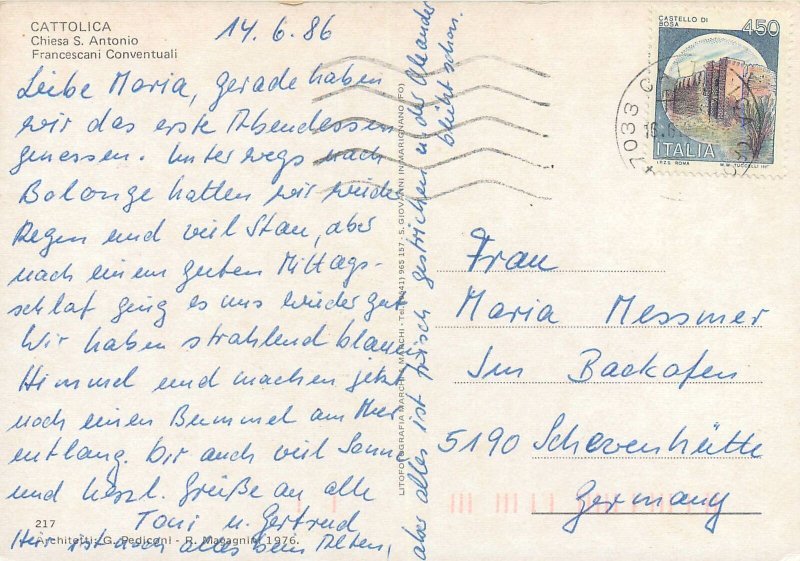 CATTOLICA
Chiesa S. Antonio
Francescani Conventuali
14.6.86
Liebe Maria, gerade haben
wir das erste Abendessen
genossen. Unterwegs nach
Bologne hatten wir wieder
Regen und viel Stau, aber
nach einem guten Mittags-
schlaf ging es uns wieder gut.
Wir haben strahlend blauen
Himmel und machen jetzt
noch einen Bummel am Meer
entlang. Dir auch viel Sonne
und herzl. Grüße an alle
Toni u. Gertrud
Hier ist noch alles beim Alten,
aber alles ist frisch gestrichen u. der Oleander
blüht schon.
217
Architetti: G. Pediconi - R. Magagnini 1976.
LITOFOTOGRAFIA MARCHI & MARCHI - Tel. (0541) 965 157 - S. GIOVANNI IN MARIGNANO (FO)
CASTELLO DI
BOSA
450
ITALIA
I.P.Z.S. ROMA
M.M. TUCCELLI
47033
16.6
Frau
Maria Messmer
Im Backofen
5190 Schevenhütte
Germany